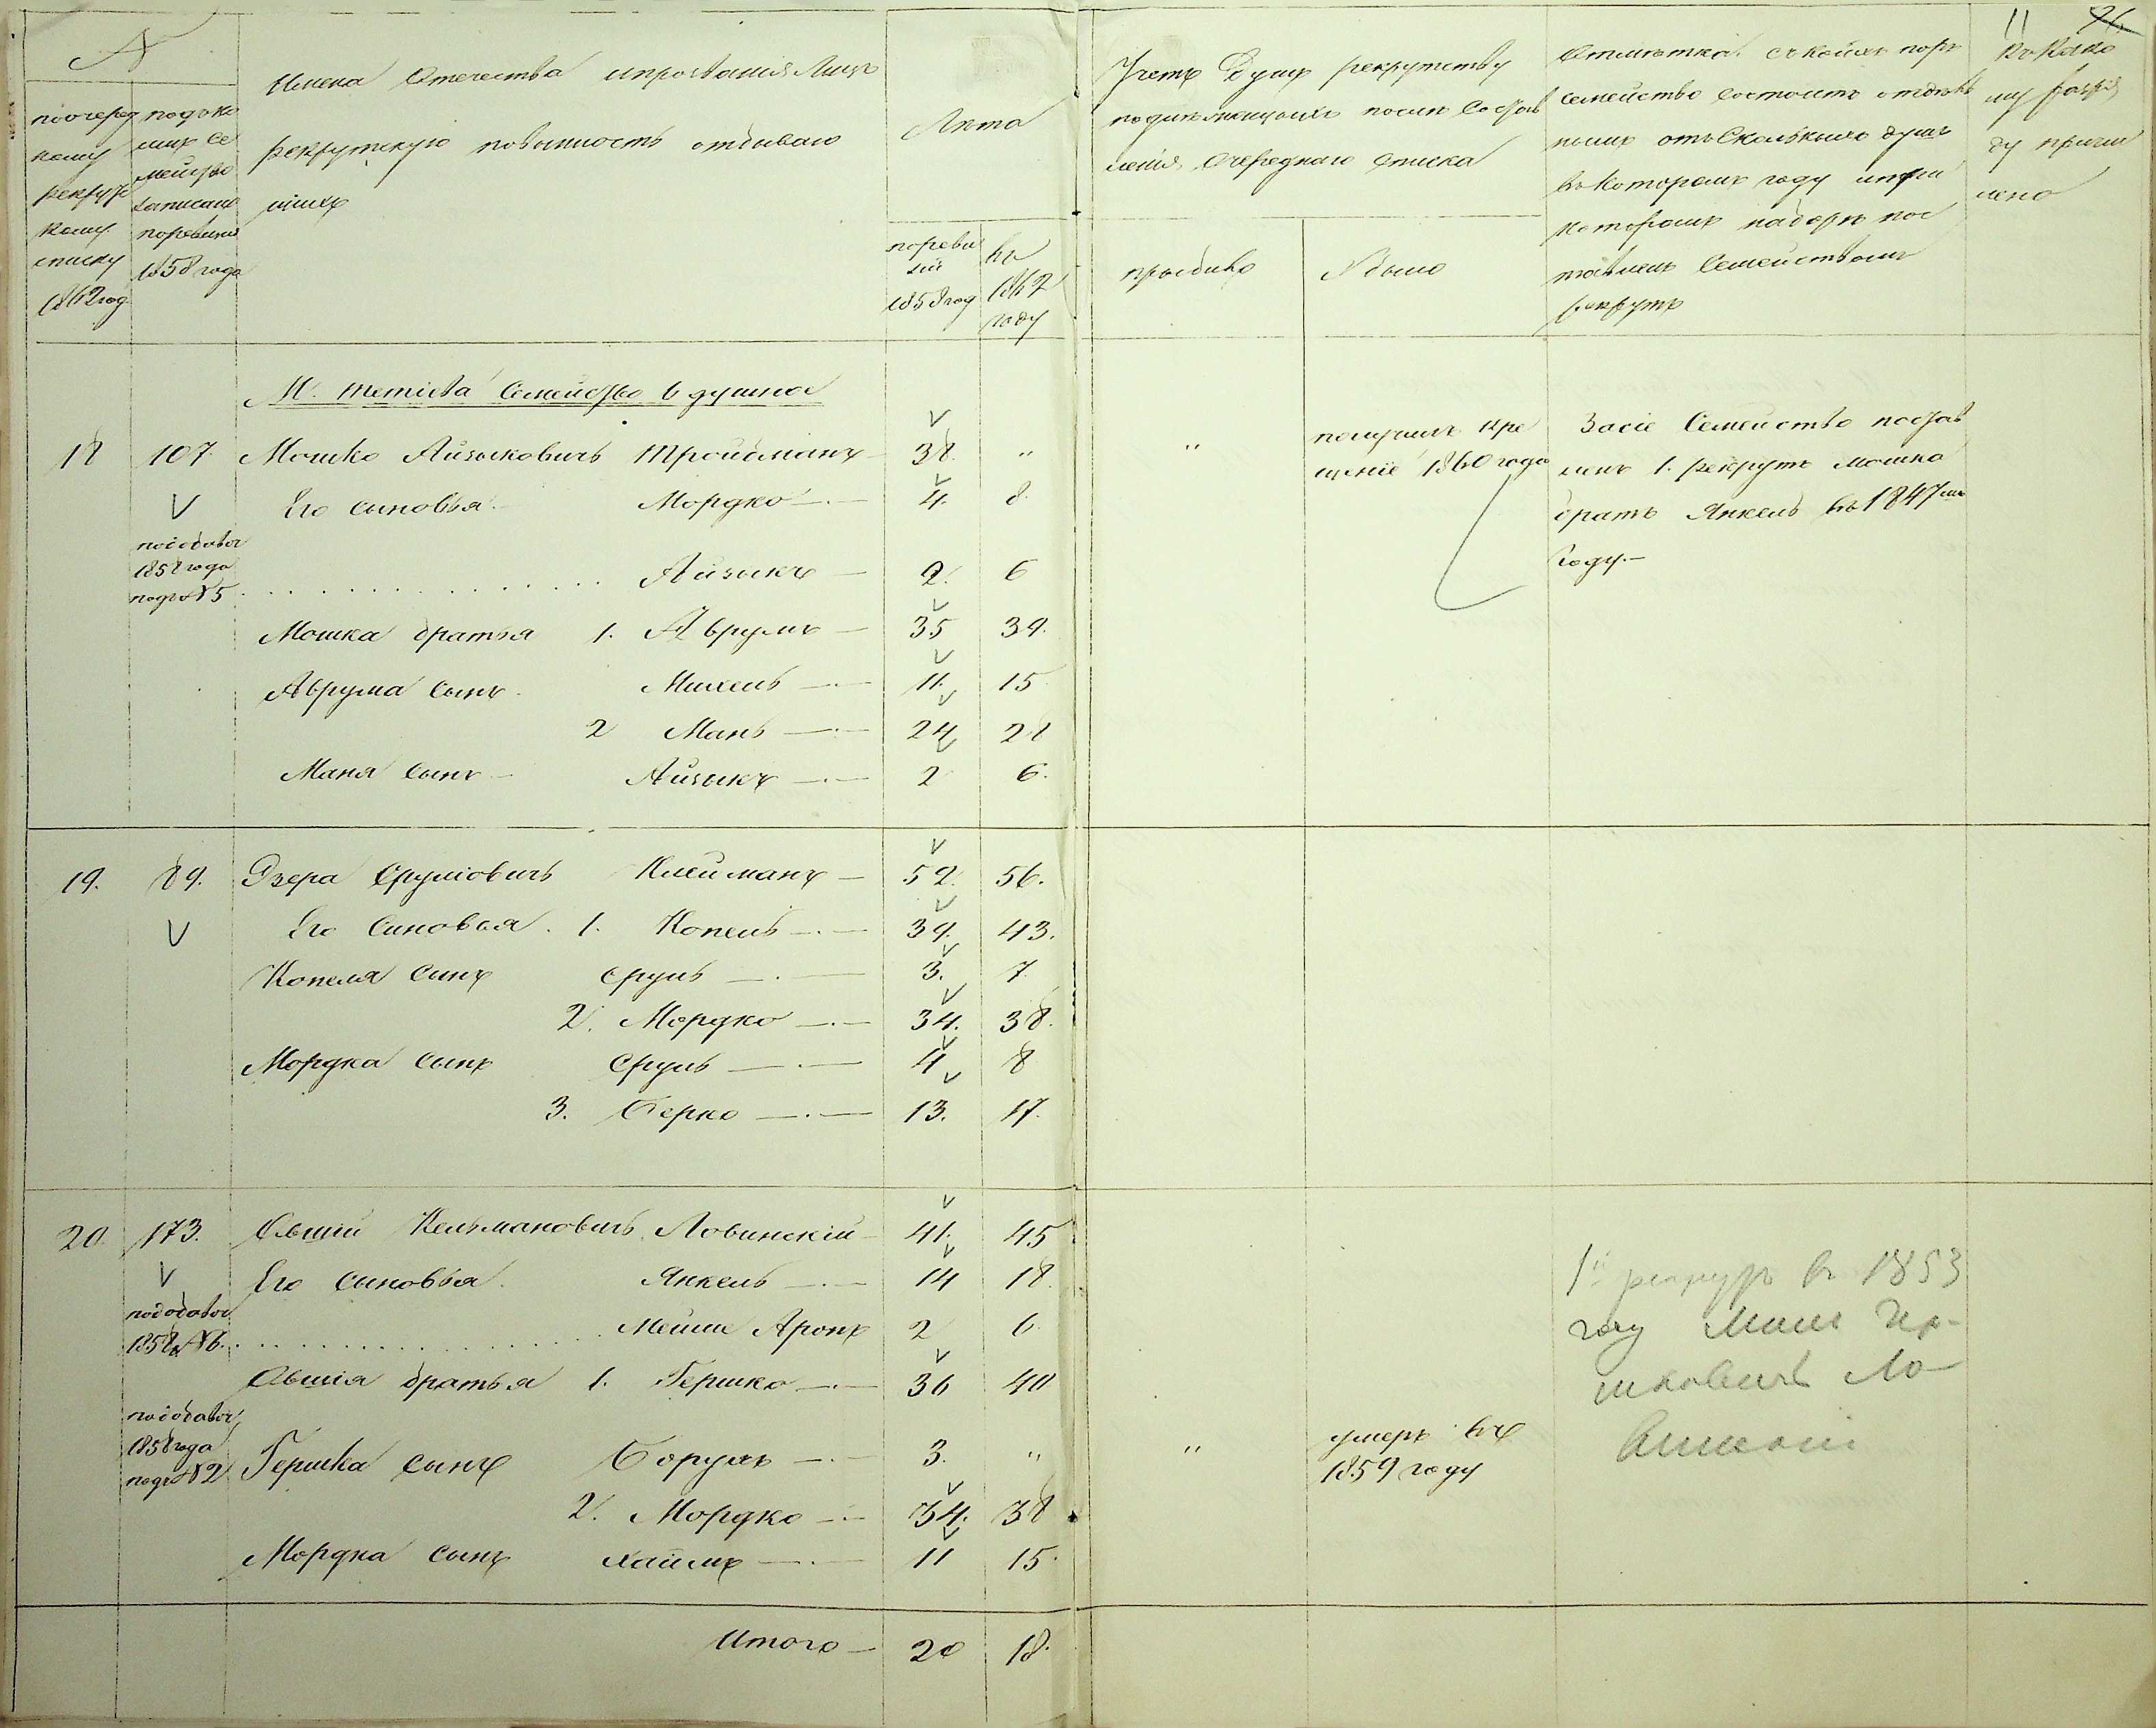 №
по очеред
ному
рекрут
скому
списку
1862 год.
под коимъ се
мейство
записано
по ревизіи
1858 года
Имена Отечества и прозванія Лицъ
рекрутскую повинность отбываю
щихъ
Лѣта
по реви
зіи
1858 год
въ
1862
году
Учетъ Душъ рекрутству
подлежащихъ послѣ Состав
ленія Очереднаго Списка
прибыло
Убыло
Отмѣтка съ коихъ поръ
семейство состоитъ отдѣль
нымъ отъ Сколькихъ душъ
въ Которомъ году и при
которомъ наборѣ пос
тавленъ Семействомъ
рекрутъ
11 26
Къ Како
му разря
ду причи
лено
Семейство 6 душное
18 107 Мошко Айзыковичъ Тройбманъ 38. " " получилъ кре
щеніе 1860 года
За сіе Семейство постав
ленъ 1. рекрутъ Мошка
братъ Янкель въ 1847мъ
Году.
V Его сыновья Мордко 4. 8
по добавоч
1858 года
подъ № 5 Айзыкъ 2. 6
Мошка братья 1. Аврумъ 35 39.
Аврума сынъ Михель 11. 15
2 Мань 24 28
Маня сынъ Айзыкъ 2 6.
19. 89. Озера Сруліовичъ Клейманъ 52. 56.
V Его Сыновья 1. Копель 39. 43.
Копеля Сынъ Сруль 3. 7
2. Мордко 34. 38.
Мордка сынъ Сруль 4 8
3. Берко 13. 17.
20. 173. Овшій Кельмановичъ Ловинскій 41. 45
V Его сыновья Янкель 14 18.
по добавоч
1858 № 6. Мейше Аронъ 2 6.
Овшія братья 1. Гершко 36 40
по добавоч
1858 года
подъ № 2 Гершка сынъ Борухъ 3. " " умеръ въ
1859 году
2. Мордко 34. 38
Мордка сынъ Хаимъ 11 15.
1 рекрутъ въ 1853
году
Итого 20 18.